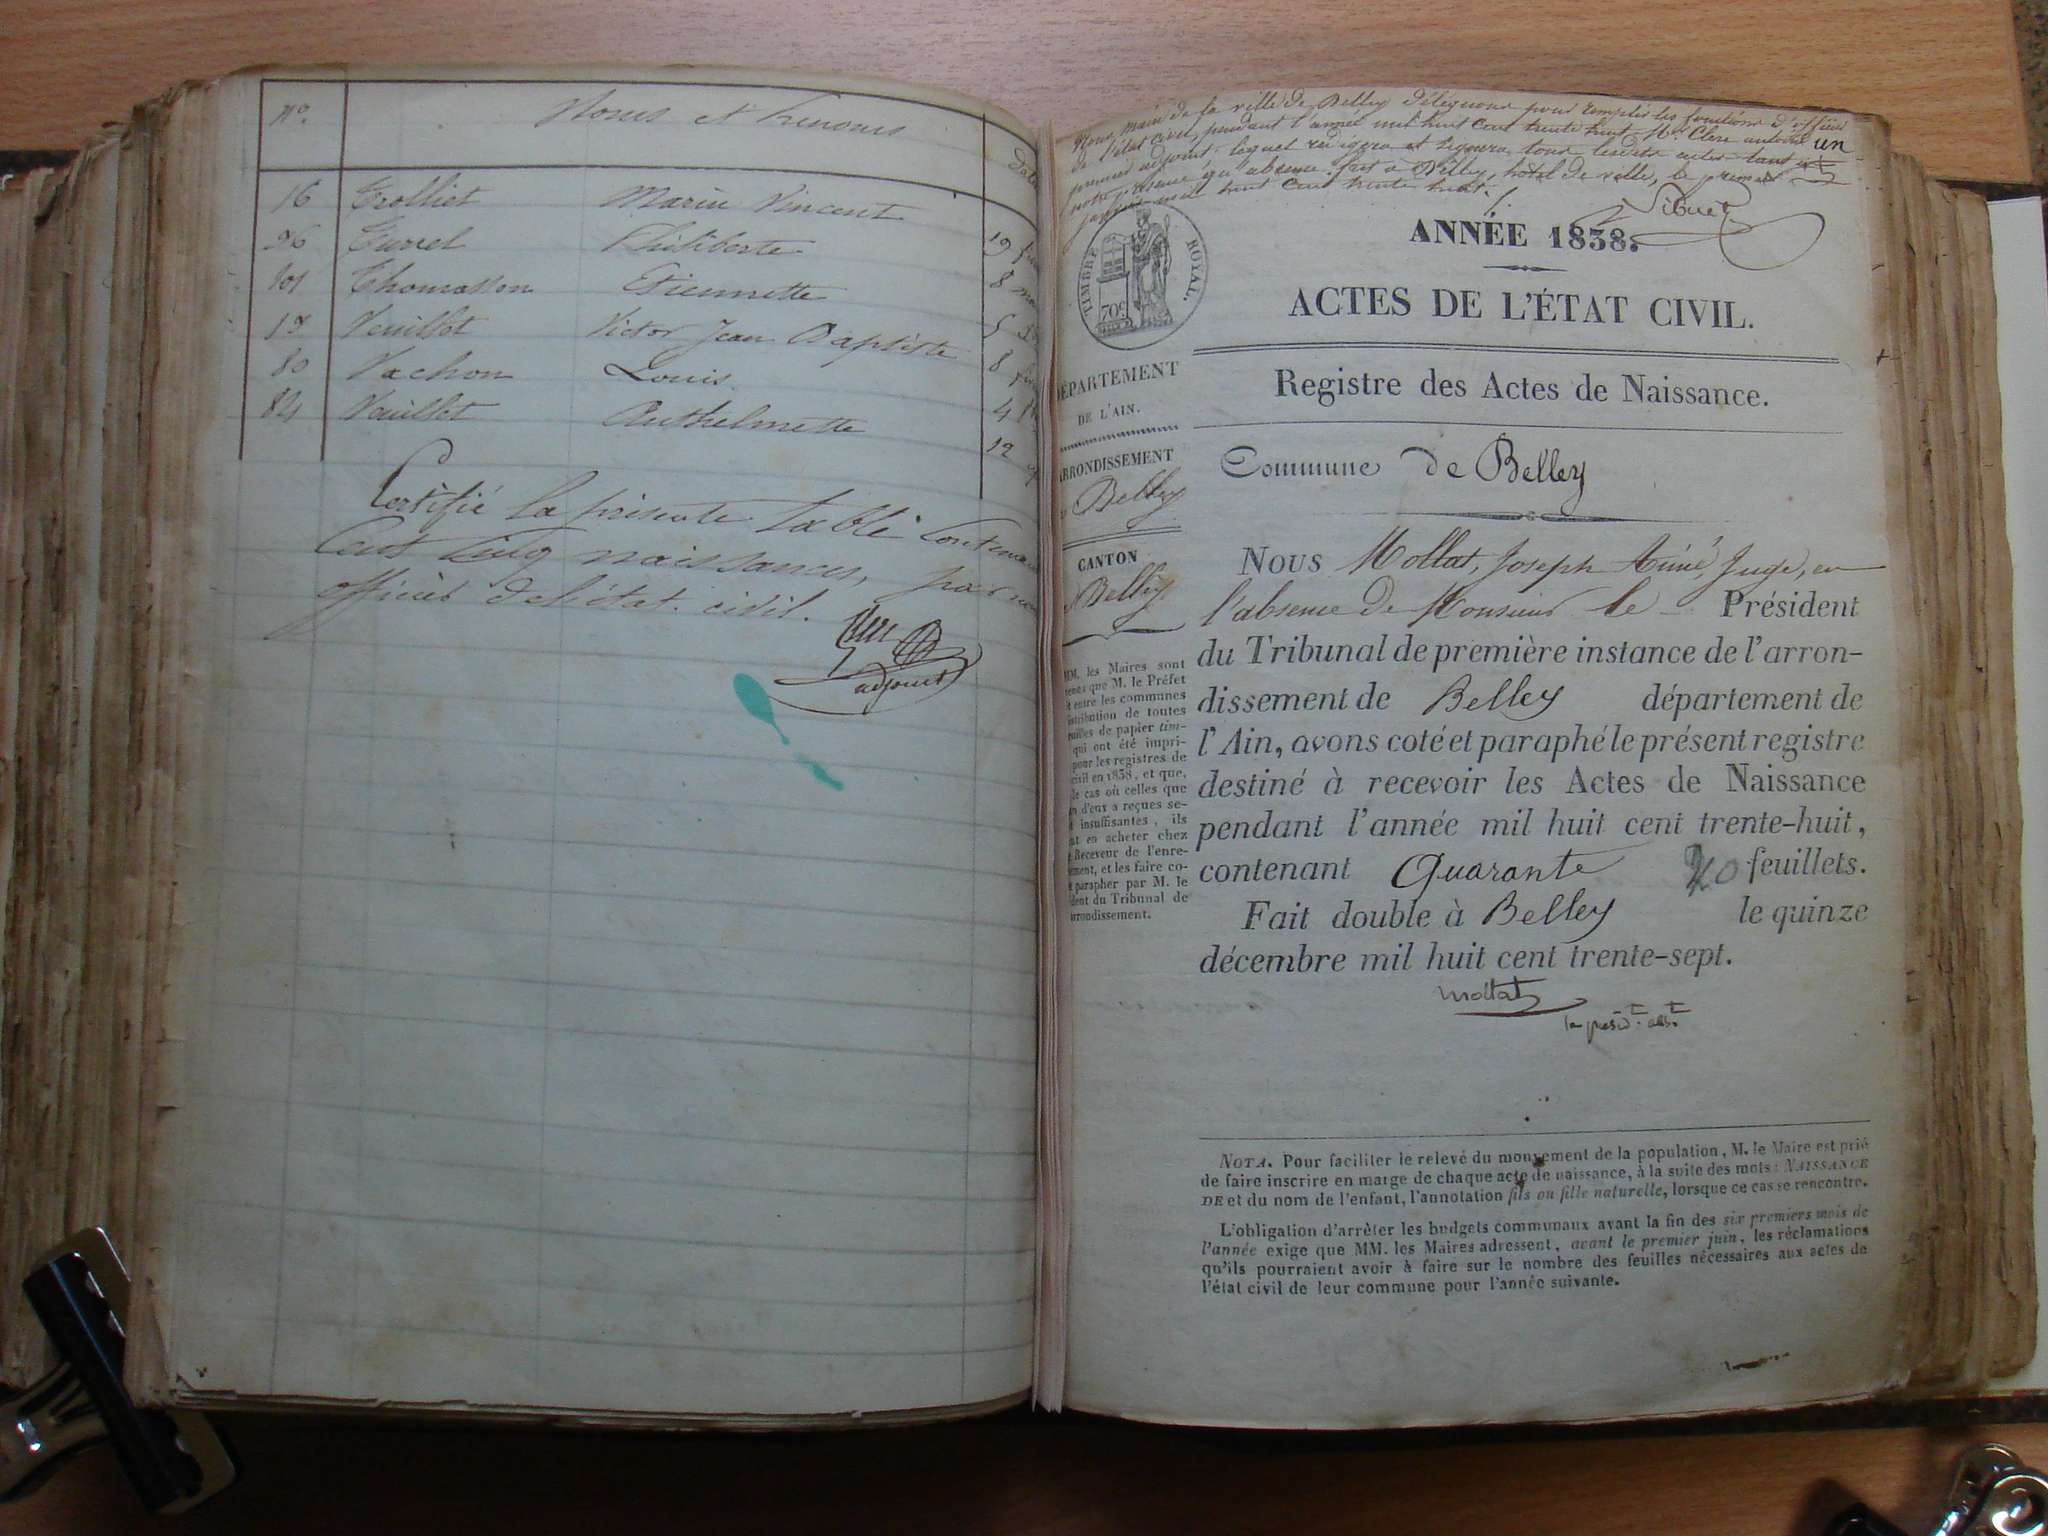 No. Noms et Prénoms Date
16 Trolliet Marin Vincent
96 Turrel Philiberte 19
101 Thomasson Etiennette 8
19 Veuillet Victor Jean Baptiste 5
80 Vachon Louis 8
84 Vouillot Anthelmette 4
12
Certifié la présente table Contenant
Cent Cinq naissances, par nous
officier de l'état civil.
adjoint
Nous, Maire de la ville de Belley déléguons pour remplir les fonctions d'officier
de l'état civil, pendant l'année mil huit cent trente huit, Mr Clerc antoine un
premier adjoint, lequel rédigera et signera tous lesdits actes tant en
notre présence qu'absence. fait à Belley, hôtel de ville, le premier
janvier mil huit cent trente huit.
Sibuet
TIMBRE ROYAL.
70c
ANNÉE 1838.
ACTES DE L'ÉTAT CIVIL.
Registre des Actes de Naissance.
DÉPARTEMENT
DE L'AIN.
ARRONDISSEMENT
Belley
CANTON
Belley
MM. les Maires sont
que M. le Préfet
entre les communes
de toutes
de papier tim-
qui ont été impri-
pour les registres de
civil en 1838, et que,
le cas où celles que
d'eux a reçues se-
insuffisantes, ils
en acheter chez
Receveur de l'enre-
et les faire co-
parapher par M. le
du Tribunal de
arrondissement.
Commune de Belley
NOUS Mollat, Joseph Aimé, Juge, en
l'absence de Monsieur le Président
du Tribunal de première instance de l'arron-
dissement de Belley département de
l'Ain, avons coté et paraphé le présent registre
destiné à recevoir les Actes de Naissance
pendant l'année mil huit cent trente-huit,
contenant Quarante 40 feuillets.
Fait double à Belley le quinze
décembre mil huit cent trente-sept.
Mollat
le présidt. abst.
NOTA. Pour faciliter le relevé du mouvement de la population, M. le Maire est prié
de faire inscrire en marge de chaque acte de naissance, à la suite des mots: NAISSANCE
DE et du nom de l'enfant, l'annotation fils ou fille naturelle, lorsque ce cas se rencontre.
L'obligation d'arrêter les budgets communaux avant la fin des six premiers mois de
l'année exige que MM. les Maires adressent, avant le premier juin, les réclamations
qu'ils pourraient avoir à faire sur le nombre des feuilles nécessaires aux actes de
l'état civil de leur commune pour l'année suivante.